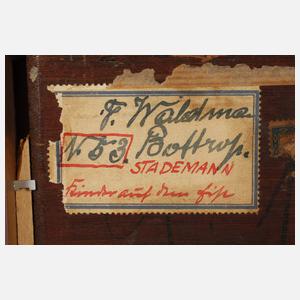 F. Waldma
N 53 Bottrop.
STADEMANN
Kinder auf dem Eise